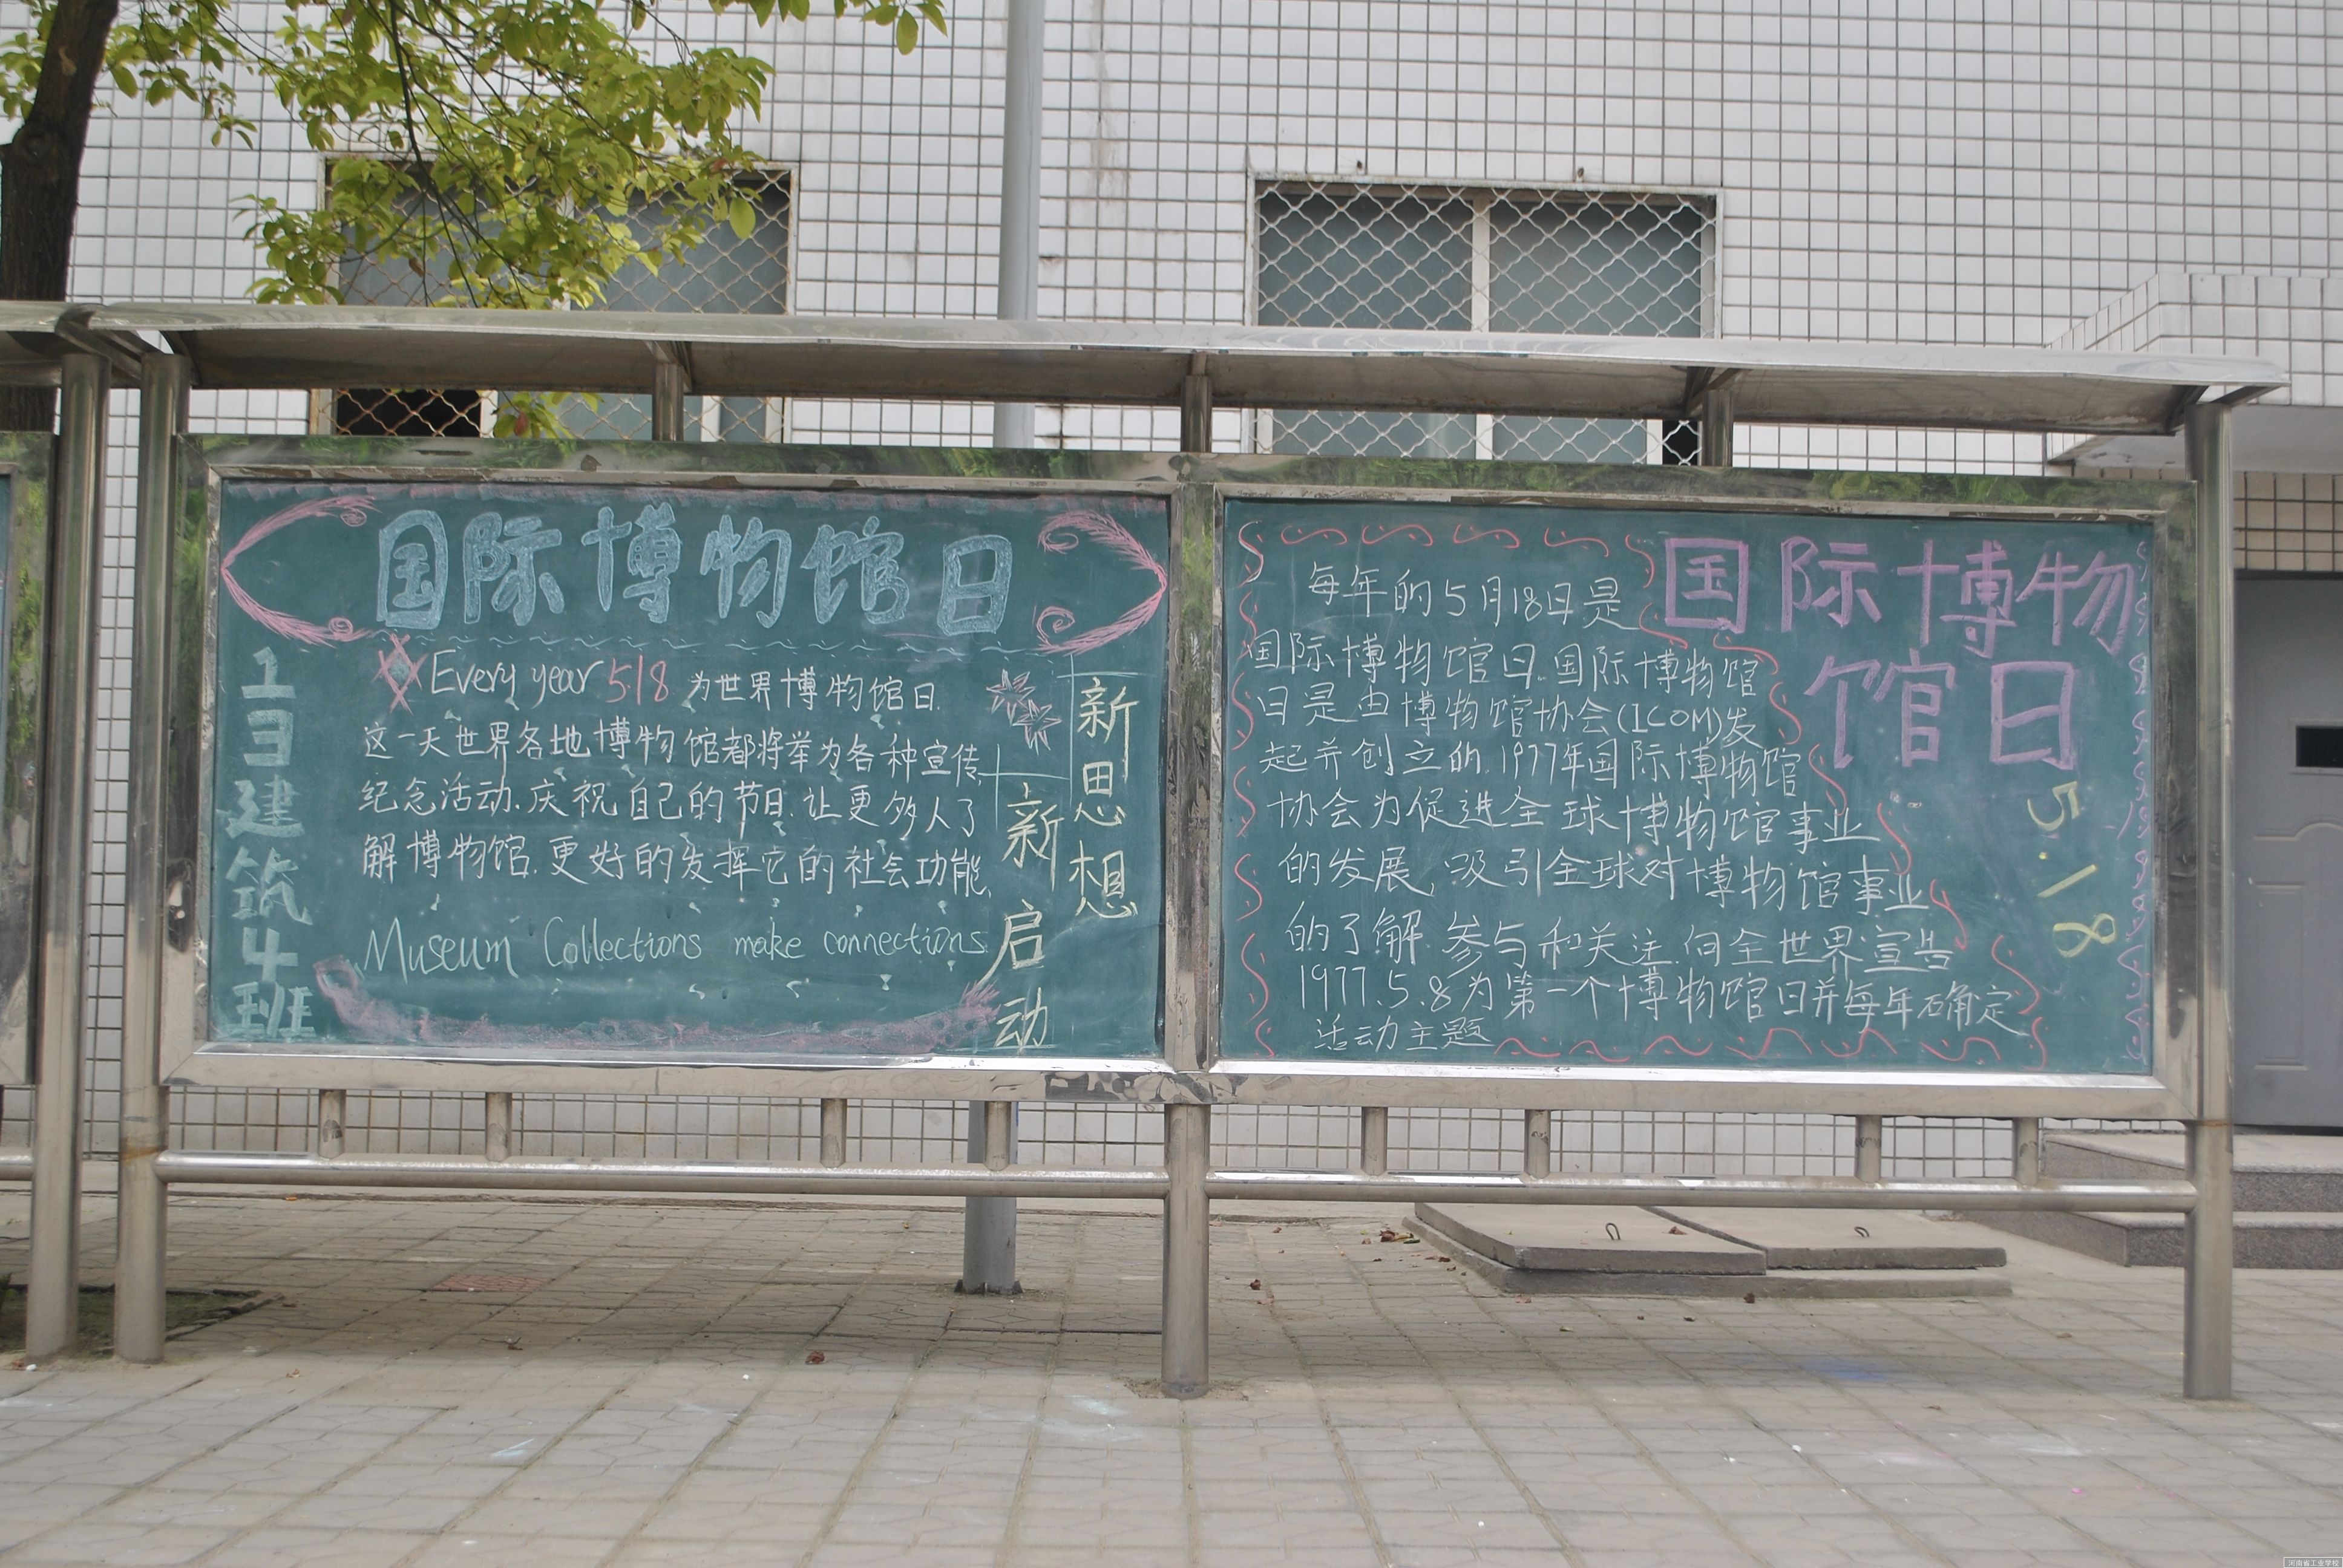 国际博物馆日
13建筑4班
Every year 5.18 为世界博物馆日.
这一天世界各地博物馆都将举为各种宣传
纪念活动.庆祝自己的节日.让更多人了
解博物馆.更好的发挥它的社会功能.
Museum Collections make connections
新思想
新启动
国际博物
馆日
5.18
每年的5月18日是
国际博物馆日.国际博物馆
日是由博物馆协会(ICOM)发
起并创立的.1977年国际博物馆
协会为促进全球博物馆事业
的发展,吸引全球对博物馆事业
的了解.参与和关注.向全世界宣告
1977.5.8为第一个博物馆日并每年确定
活动主题
河南省工业学校